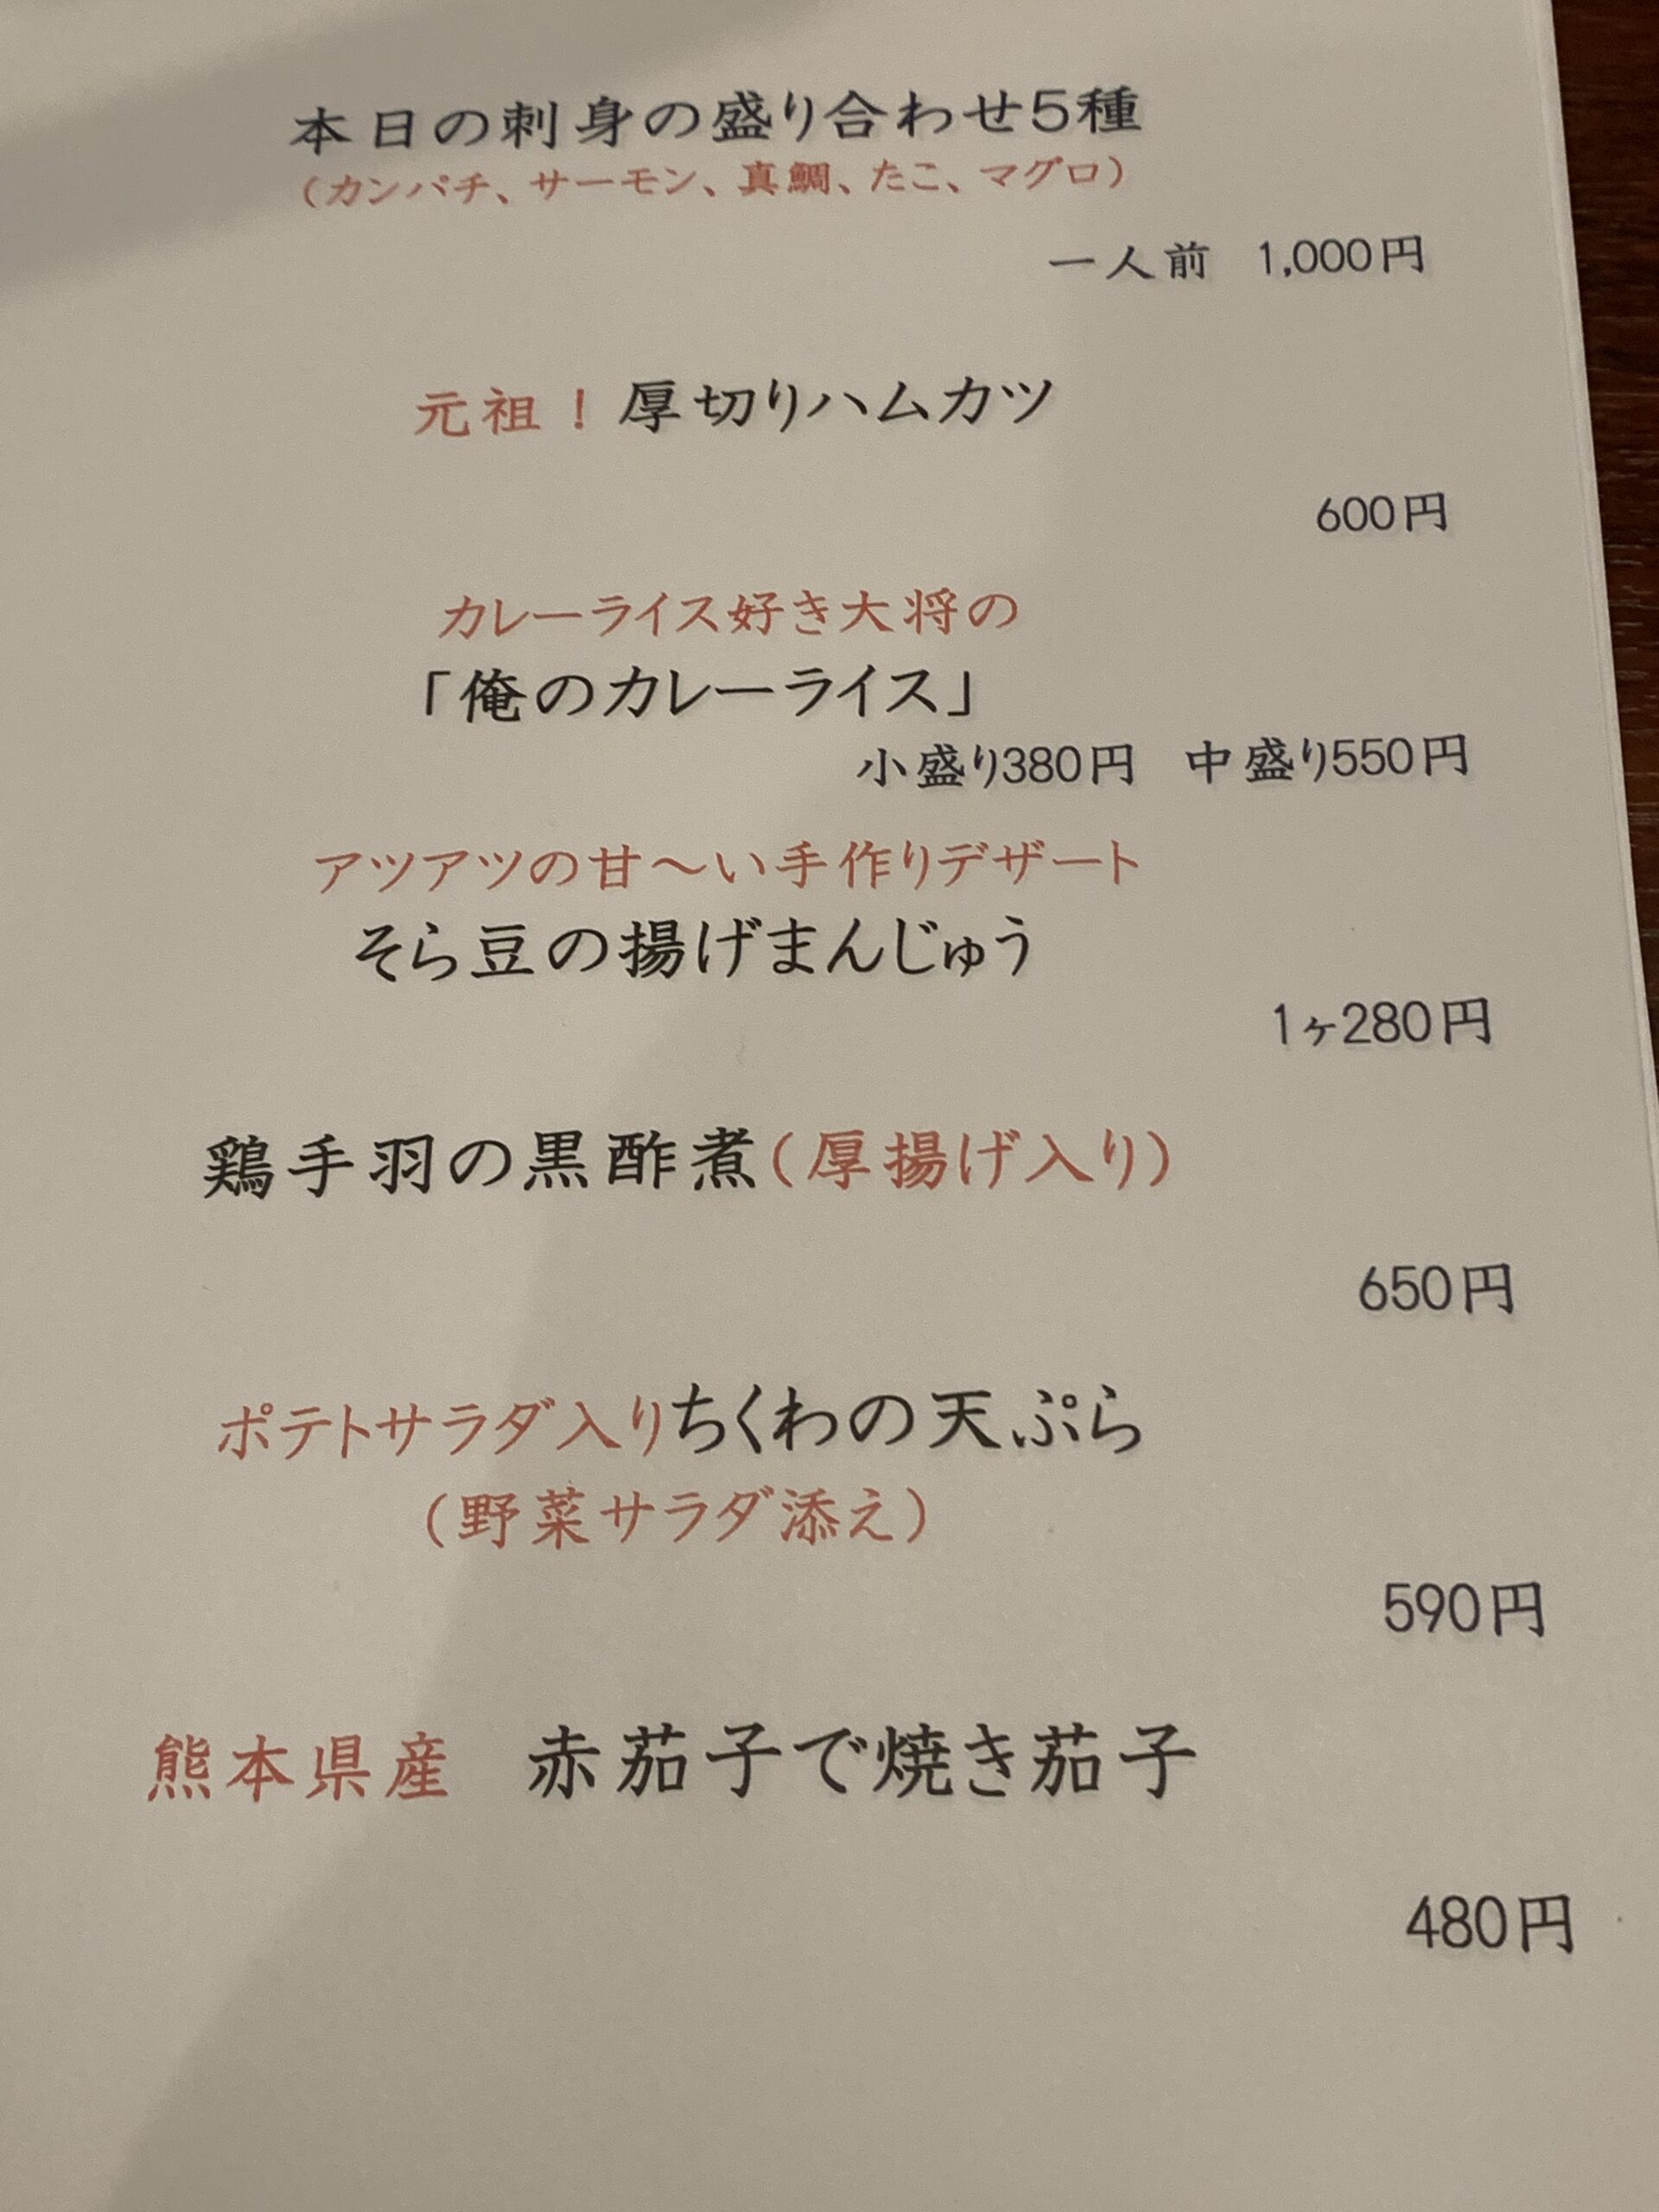 本日の刺身の盛り合わせ5種
（カンパチ、サーモン、真鯛、たこ、マグロ）
一人前　1,000円
元祖！厚切りハムカツ
600円
カレーライス好き大将の
「俺のカレーライス」
小盛り380円　中盛り550円
アツアツの甘～い手作りデザート
そら豆の揚げまんじゅう
1ヶ280円
鶏手羽の黒酢煮（厚揚げ入り）
650円
ポテトサラダ入りちくわの天ぷら
（野菜サラダ添え）
590円
熊本県産　赤茄子で焼き茄子
480円